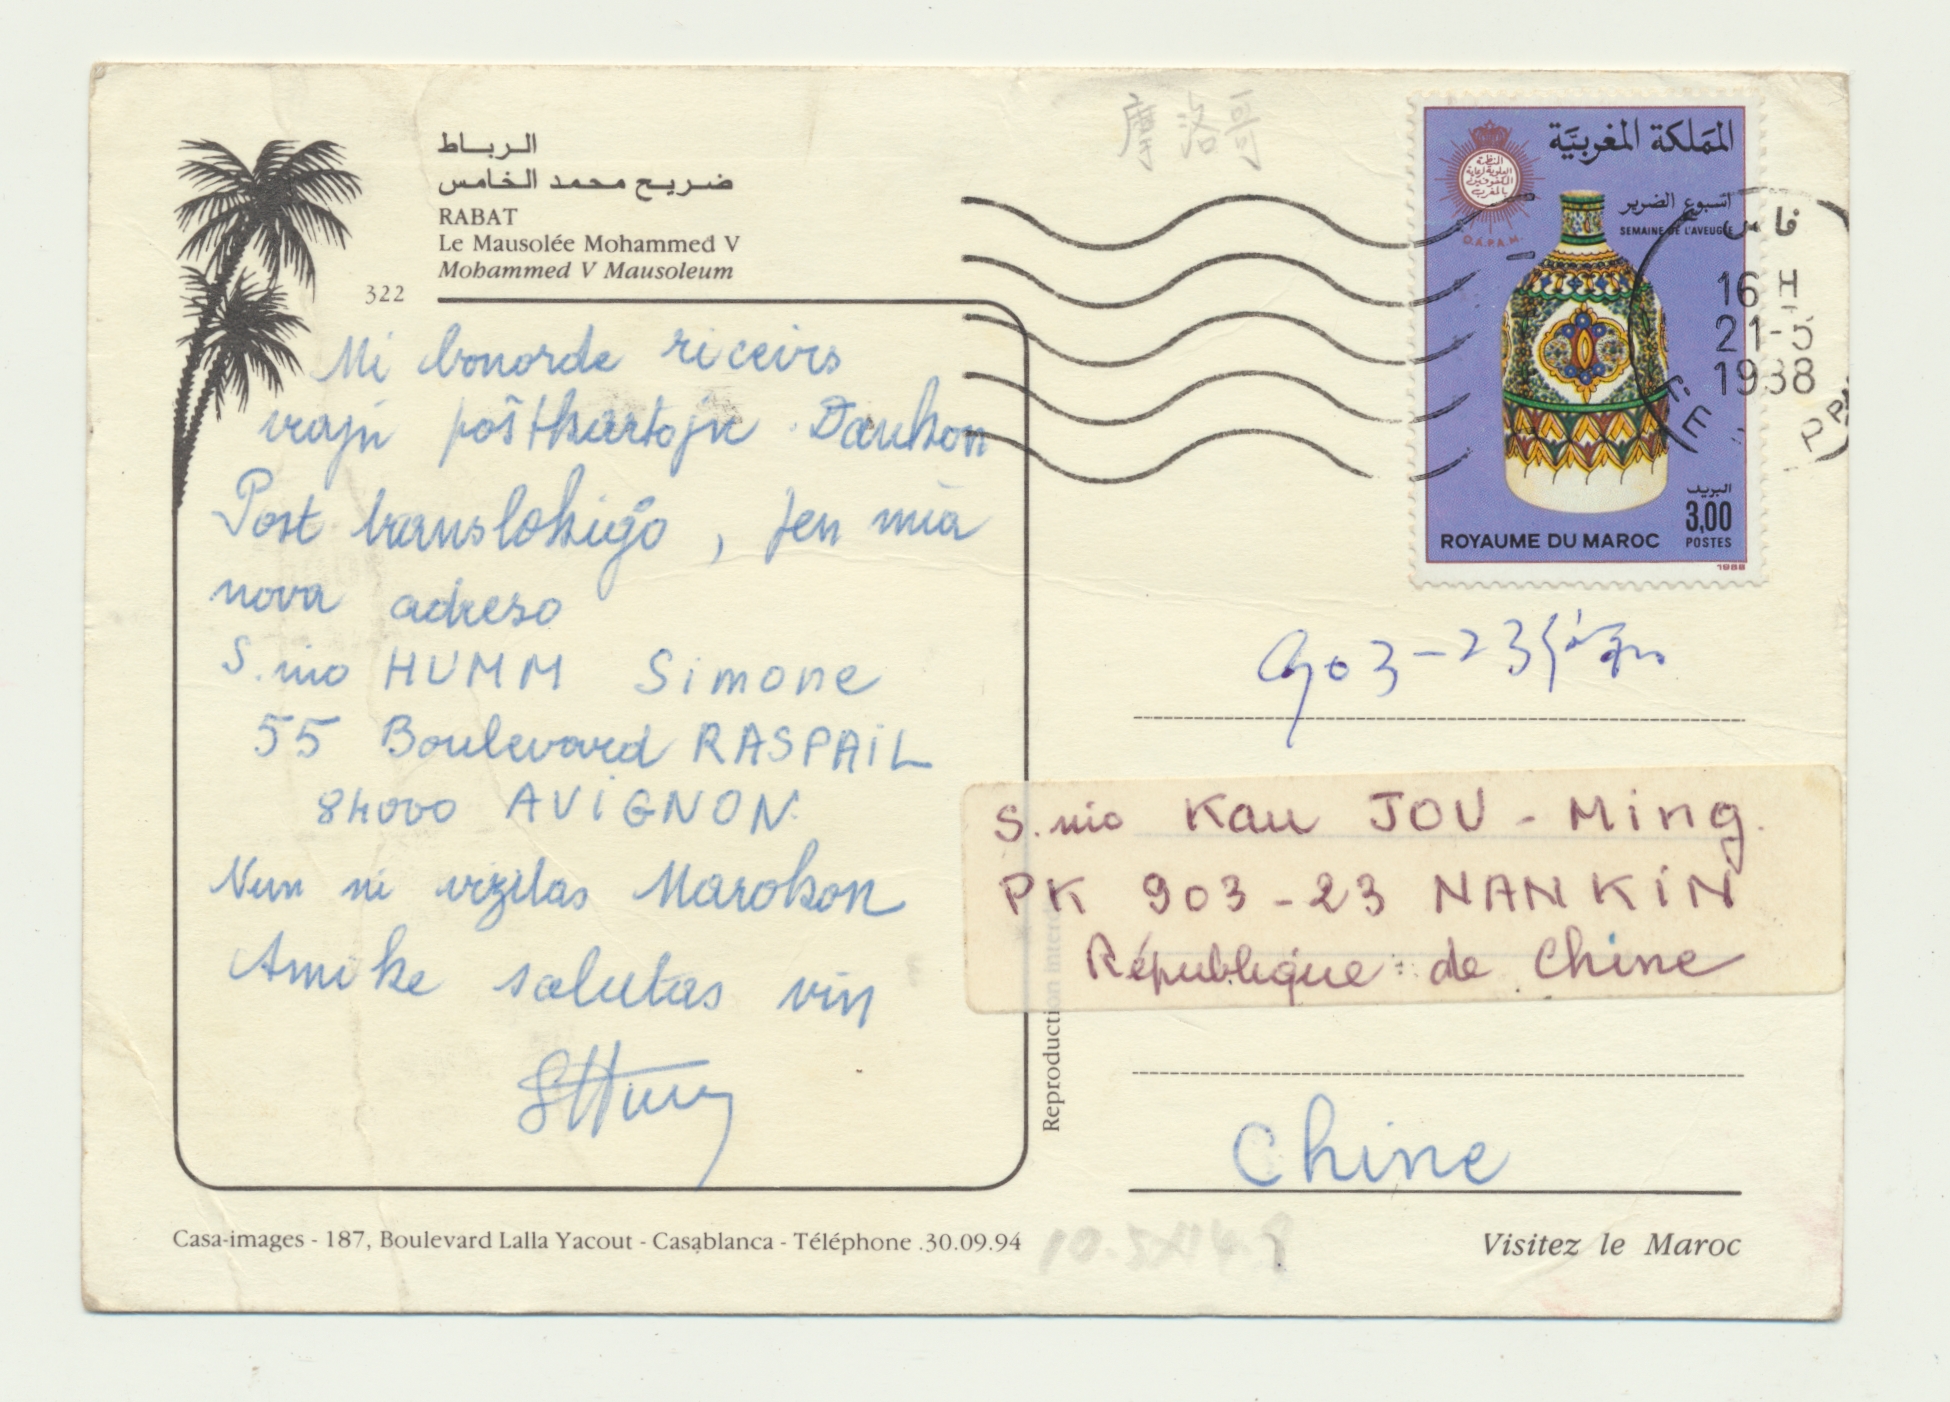 الرباط
ضريح محمد الخامس
RABAT
Le Mausolée Mohammed V
Mohammed V Mausoleum
322
Mi bonorde ricevis
viajn poŝtkartojn. Dankon
Post translokiĝo, jen mia
nova adreso
S.ino HUMM Simone
55 Boulevard RASPAIL
84000 AVIGNON.
Nun ni vizitas Marokon
Amike salutas vin
SHumm
Casa-images - 187, Boulevard Lalla Yacout - Casablanca - Téléphone .30.09.94
Reproduction
摩洛哥
المملكة المغربية
المنظمة
العلوية لرعاية
المكفوفين
بالمغرب
O.A.P.A.M.
اسبوع الضرير
SEMAINE DE L'AVEUGLE
البريد
3,00
POSTES
ROYAUME DU MAROC
1988
فاس
16 H
21-5
1988
903-23
S.ino Kau JOU-Ming.
PK 903-23 NANKiN
République de Chine
Chine
10.5X14.8
Visitez le Maroc